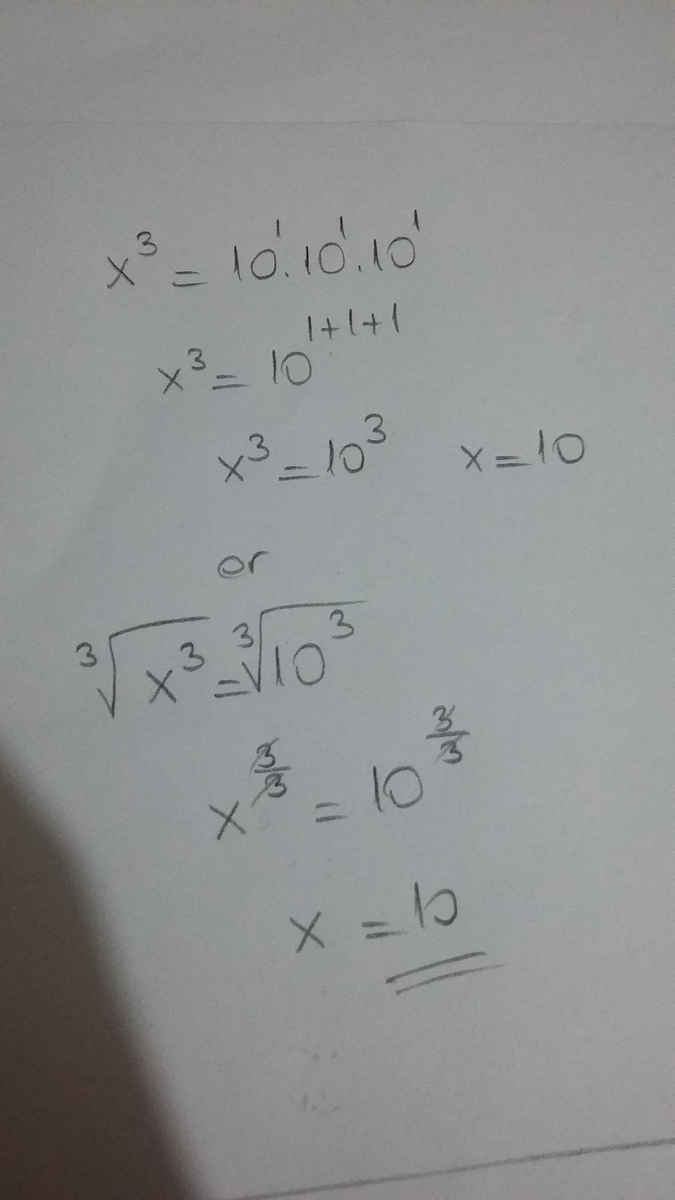 x³ = 10¹.10¹.10¹
x³ = 10¹⁺¹⁺¹
x³ = 10³ x = 10
or
∛x³ = ∛10³
x^(3/3) = 10^(3/3)
x = 10